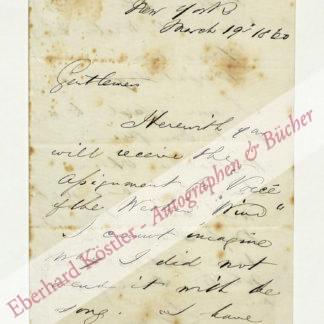 New York
March 19th 1860
Gentlemen
Herewith you
will receive the
assignment of "Voice
of the Western Wind"
I cannot imagine
why I did not
send it with the
song. I have
Eberhard Köstler - Autographen & Bücher